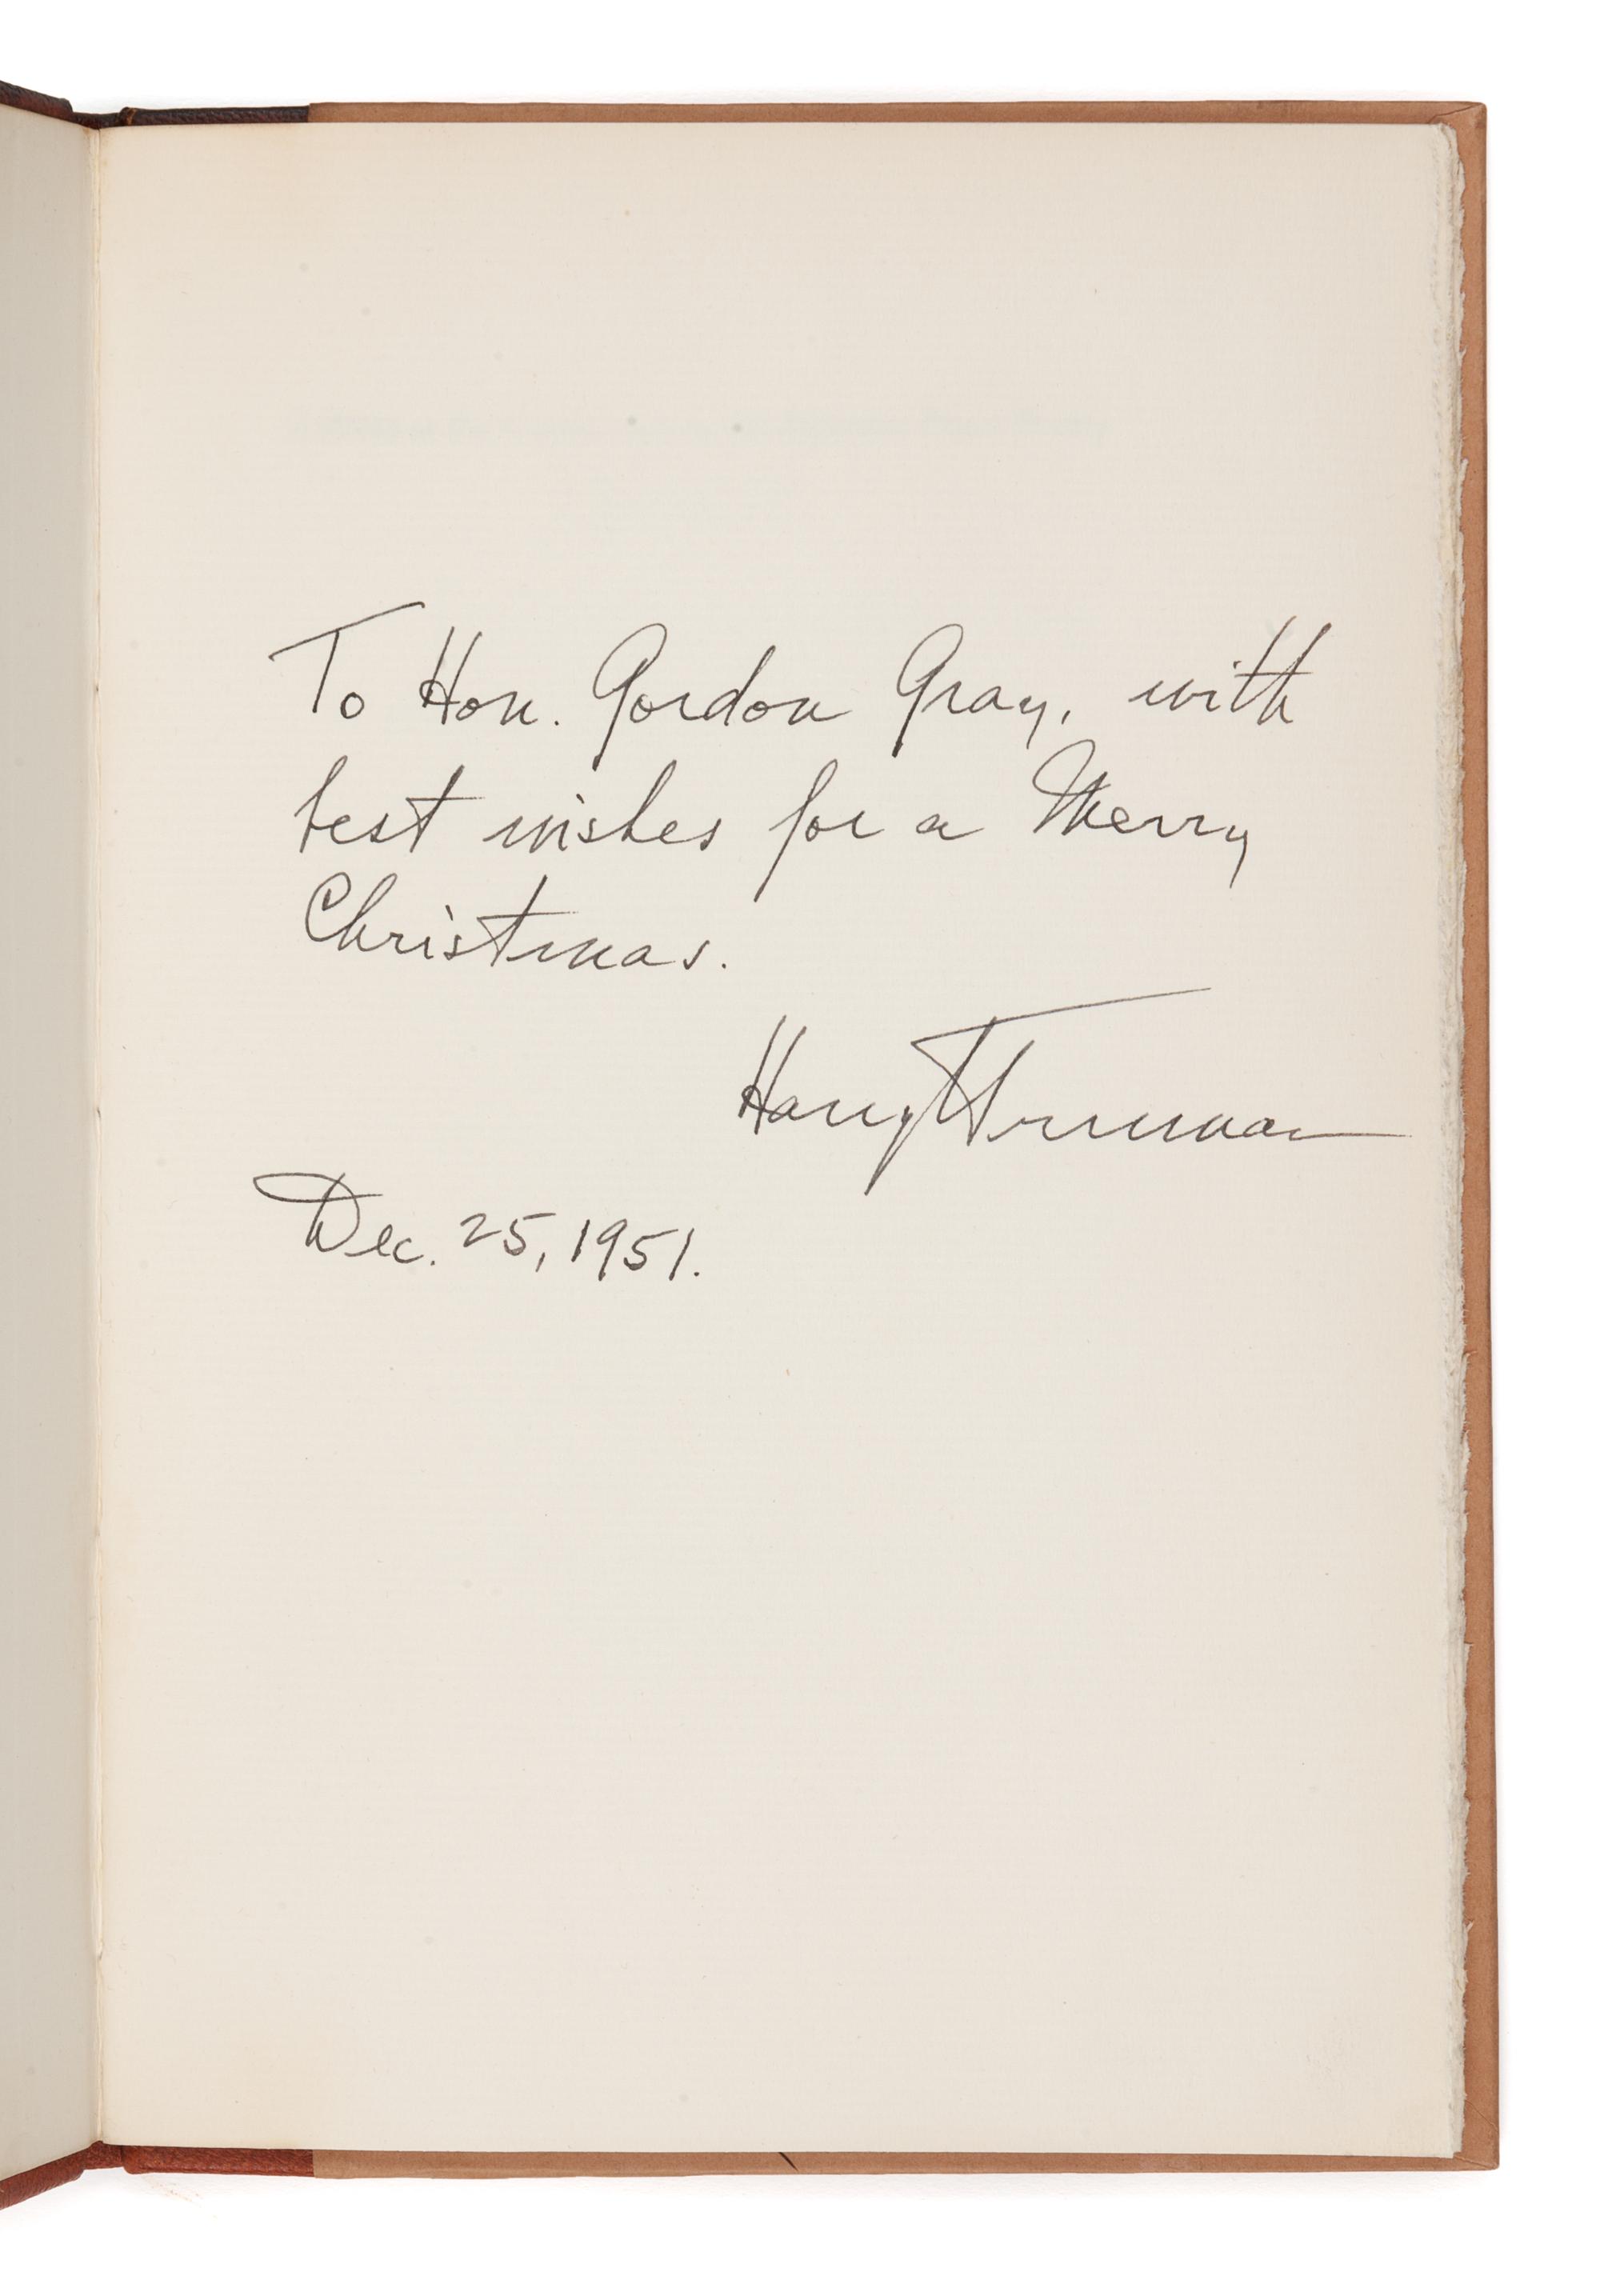 To Hon. Gordon Gray, with
best wishes for a Merry
Christmas.
Harry Truman
Dec. 25, 1951.